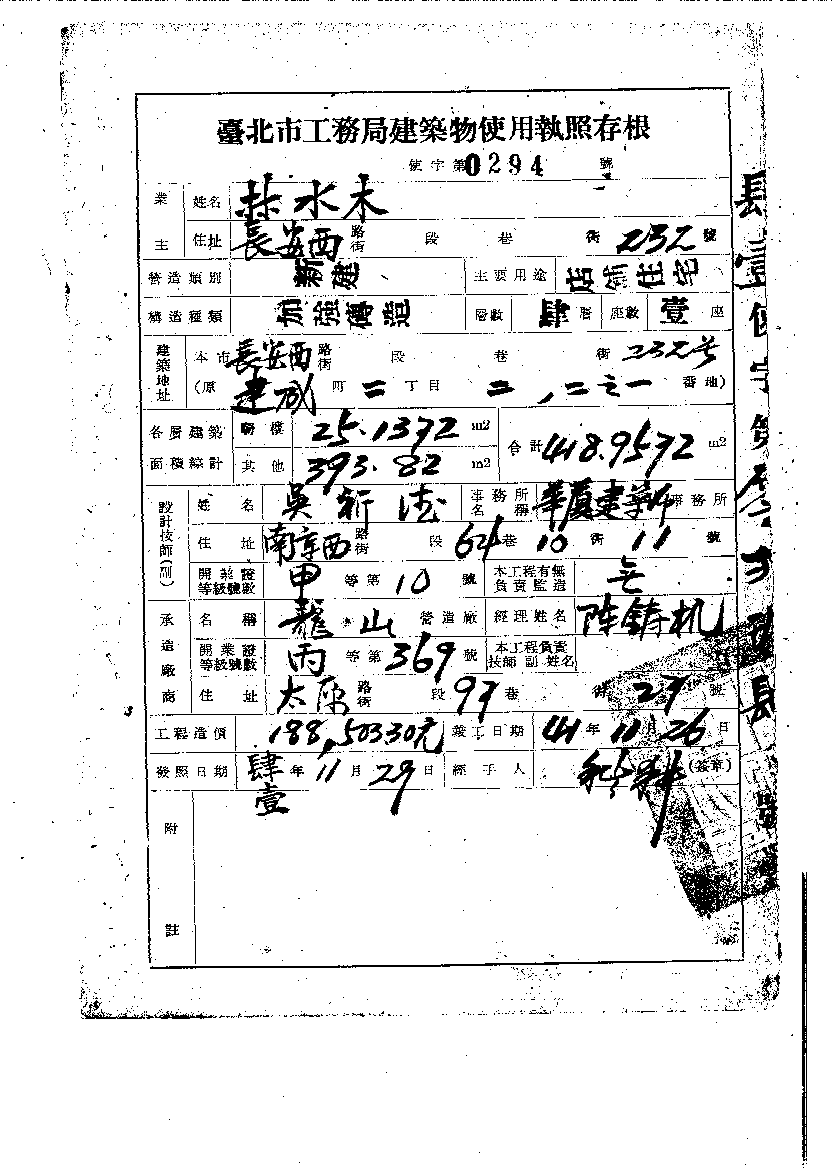 臺北市工務局建築物使用執照存根
使字第0294號
業主 姓名 林水木
住址 長安西 路街 段 巷 街 232 號
營造類別 新建 主要用途 店舖住宅
構造種類 加強磚造 層數 肆層 座數 壹座
建築地址 本市 長安西 路街 段 巷 街 232号
(原 建成 町 二 丁目 二,二之一 番地)
各層建築面積總計 騎樓 25.1372 m2 合計 418.9572 m2
其他 393.82 m2
設計技師(副) 姓名 吳 事務所名稱 華廈建築師事務所
住址 南京西 路街 段 64 巷 10 街 11 號
開業證等級號數 甲 等第 10 號 本工程有無負責監造 無
承造廠商 名稱 龍山 營造廠 經理姓名 陳鋳机
開業證等級號數 丙 等第 369 號 本工程負責技師 副 姓名
住址 太原 路街 段 97 巷 街 27 號
工程造價 188,503.30元 竣工日期 41年11月26日
發照日期 肆壹年11月29日 經手人 (簽章)
附註
壹使字第 號